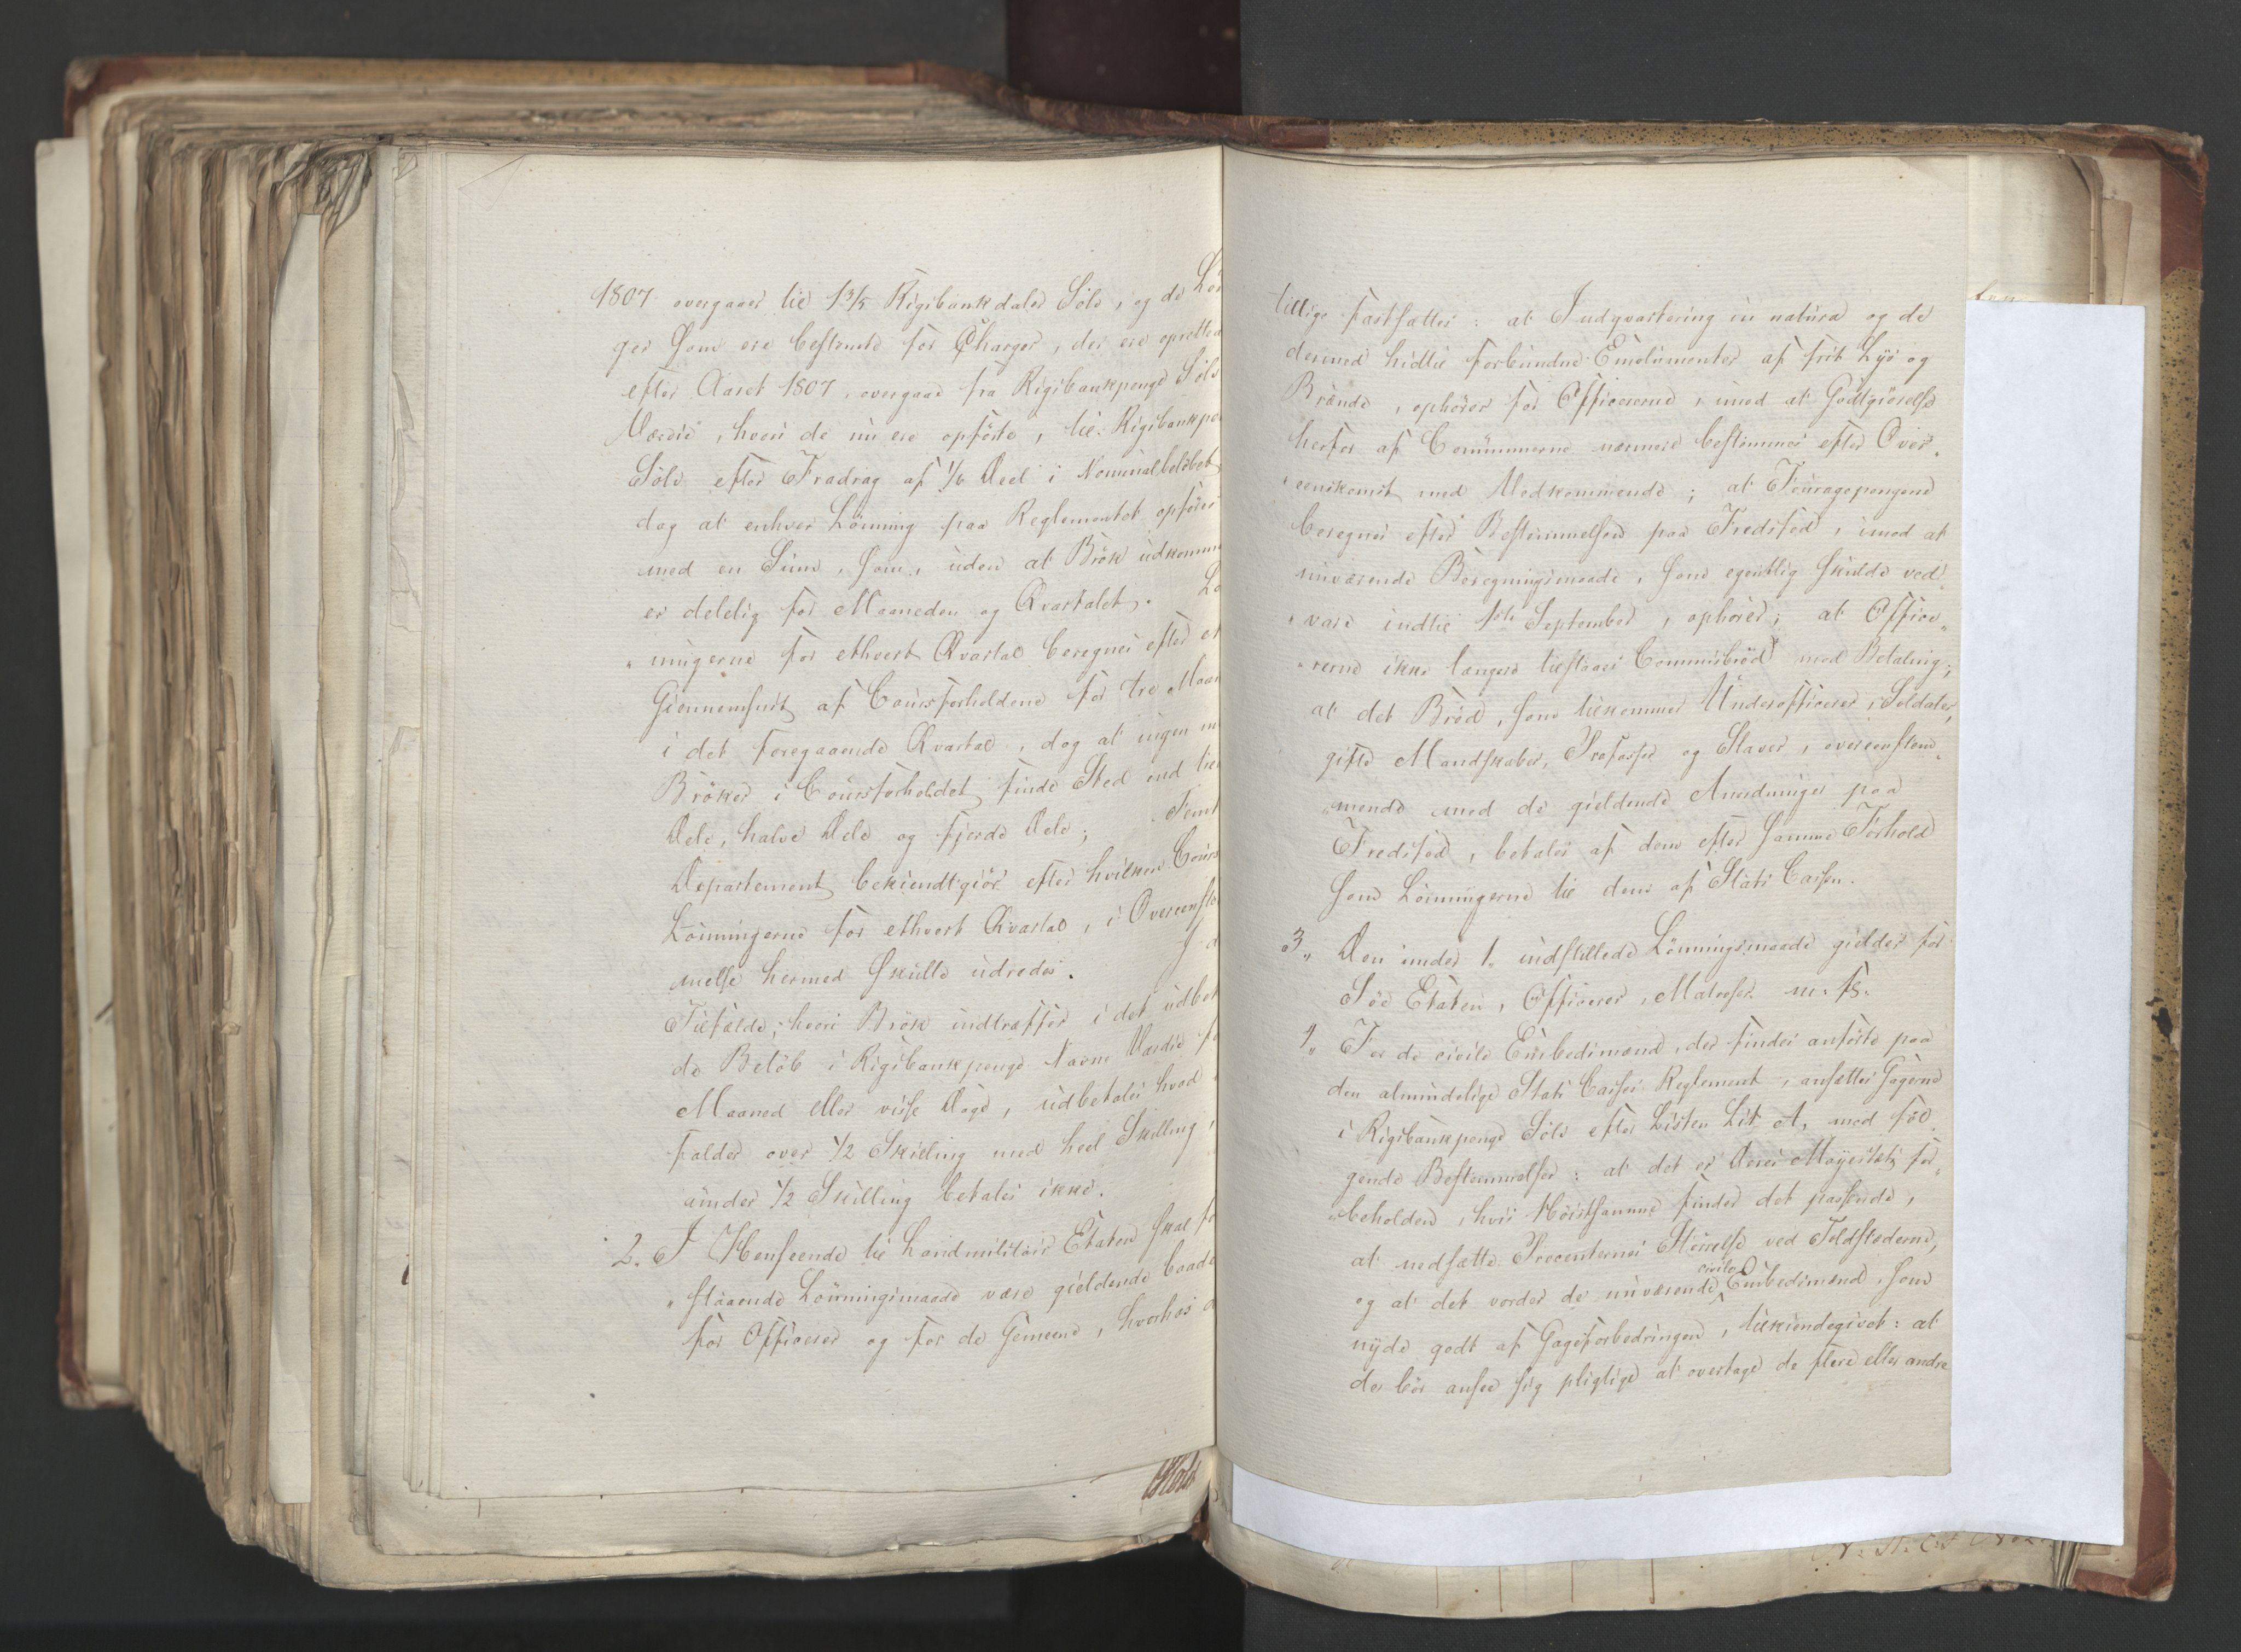 1807 overgaaer til 1 3/5 Rigsbankdaler Sölv, og de Lön
ger som ere bestemte for Charger, der ere opretted
efter Aaret 1807, overgaae fra Rigsbankpenge Sölv
Værdie, hvori de nu ere opförte, til Rigsbankpe
Sölv efter Fradrag af 1/6 Deel i Nominalbelöbet
dog at enhver Lönning paa Reglementet opföres
med en Sum, som, uden at Brök udkomm
er delelig for Maaneden og Qvartalet. Lö
„ningerne for ethvert Qvartal beregnes efter et
Giennemsnit af Coursforholdene for tre Maan
i det foregaaende Qvartal, dog at ingen m
Bröker i Coursforholdet finde Sted end til
Dele, halve Dele og fjerde Dele;
Departement bekiendtgiör efter hvilken Cours
Lönningerne for ethvert Qvartal, i Overeenste
melse hermed skulle udredes. J a
Tilfælde, hvori Brök indtræffer i det udbet
de Belöb i Rigsbankpenge Navne Værdie fo
Maaned eller visse Dage, udbetales hvad
falder over 1/2 Skilling med heel Skilling,
under 1/2 Skilling betales ikke.
2. J Henseende til Landmilitair Etaten skal fo
„staaende Lönningsmaade være gieldende baade
for Officerer og for de Gemeene, hvorhos d
tillige fastsættes: at Indqvartering in natura og de
dermed hidtil forbundne Emolumenter af frit Lys og
Brænde, ophörer for Officererne, imod at Godtgiörelse
herfor af Communerne nærmere bestemmes efter Over„
„eenskomst med Vedkommende; at Fouragepengene
beregnes efter Bestemmelsen paa Fredsfod, imod at
nuværende Beregningsmaade, som egentlig skulde ved„
„vare indtil 1ste September, ophörer; at Office„
„rerne ikke længere tilstaaes Commisbröd mod Betaling;
at det Bröd, som tilkommer Underofficerer, Soldater,
gifte Mandskaber, Profosser og Slaver, overeenstem„
„mende med de gieldende Anordninger paa
Fredsfod, betales af dem efter samme Forhold
som Lönningerne til dem af Stats Cassen.
3„ Den under 1. indstillede Lönningsmaade gielder for
Söe Etaten, Officerer, Matroser m. fl.
4„ For de civile Embedsmænd, der findes anförte paa
den almindelige Stats Casses Reglement, ansættes Gagerne
i Rigsbankpenge Sölv efter Listen Lit A, med föl„
gende Bestemmelser: at det er Deres Majestæt for„
„beholden, hvis Höistsamme finder det passende,
at nedsætte Procenternes Störrelse ved Toldstæderne,
og at det vorder de nuværende civile Embedsmænd, som
nyde godt af Gageforbedringen, tilkiendegivet: at
de bör ansee sig pligtige at overtage de flere eller andre